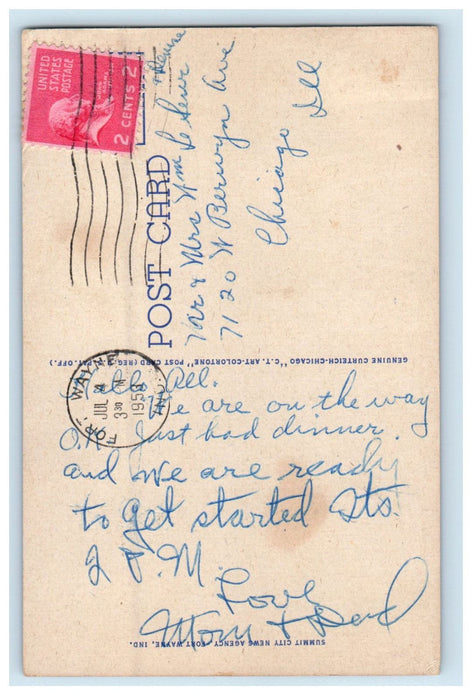 UNITED
STATES
POSTAGE
2 CENTS 2
POST CARD
Mr & Mrs Wm Le Seur
7120 W Berwyn Ave
Chicago Ill
GENUINE CURTEICH-CHICAGO "C.T. ART-COLORTONE" POST CARD (REG. U.S. PAT. OFF.)
FORT WAYNE
IND.
JUL
3 30 PM
195
Hello All.
We are on the way
O.K. Just had dinner.
and we are ready
to get started Its
2 P.M.
Love
Mom & Dad
SUMMIT CITY NEWS AGENCY - FORT WAYNE, IND.